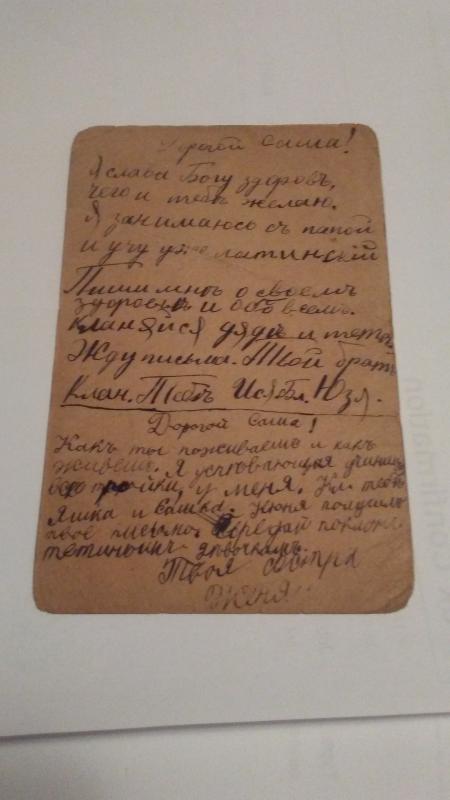 Дорогой Саша!
Я слава Богу здоровъ,
чего и тебѣ желаю.
Я занимаюсь съ папой
и учу уже латинскій
Пиши мнѣ о своемъ
здоровьи и обо всемъ.
Кланяйся дядѣ и тетѣ
Жду письма. Твой братъ
Клан. Тебѣ Юзя.
Дорогой Саша!
Какъ ты поживаешь и какъ
живешь. Я
тройки у меня. Кл. тебѣ
Яшка и Сашка. Женя получила
твое письмо. Передай поклонъ
тетинымъ дѣвочкамъ.
Твоя сестра
Женя